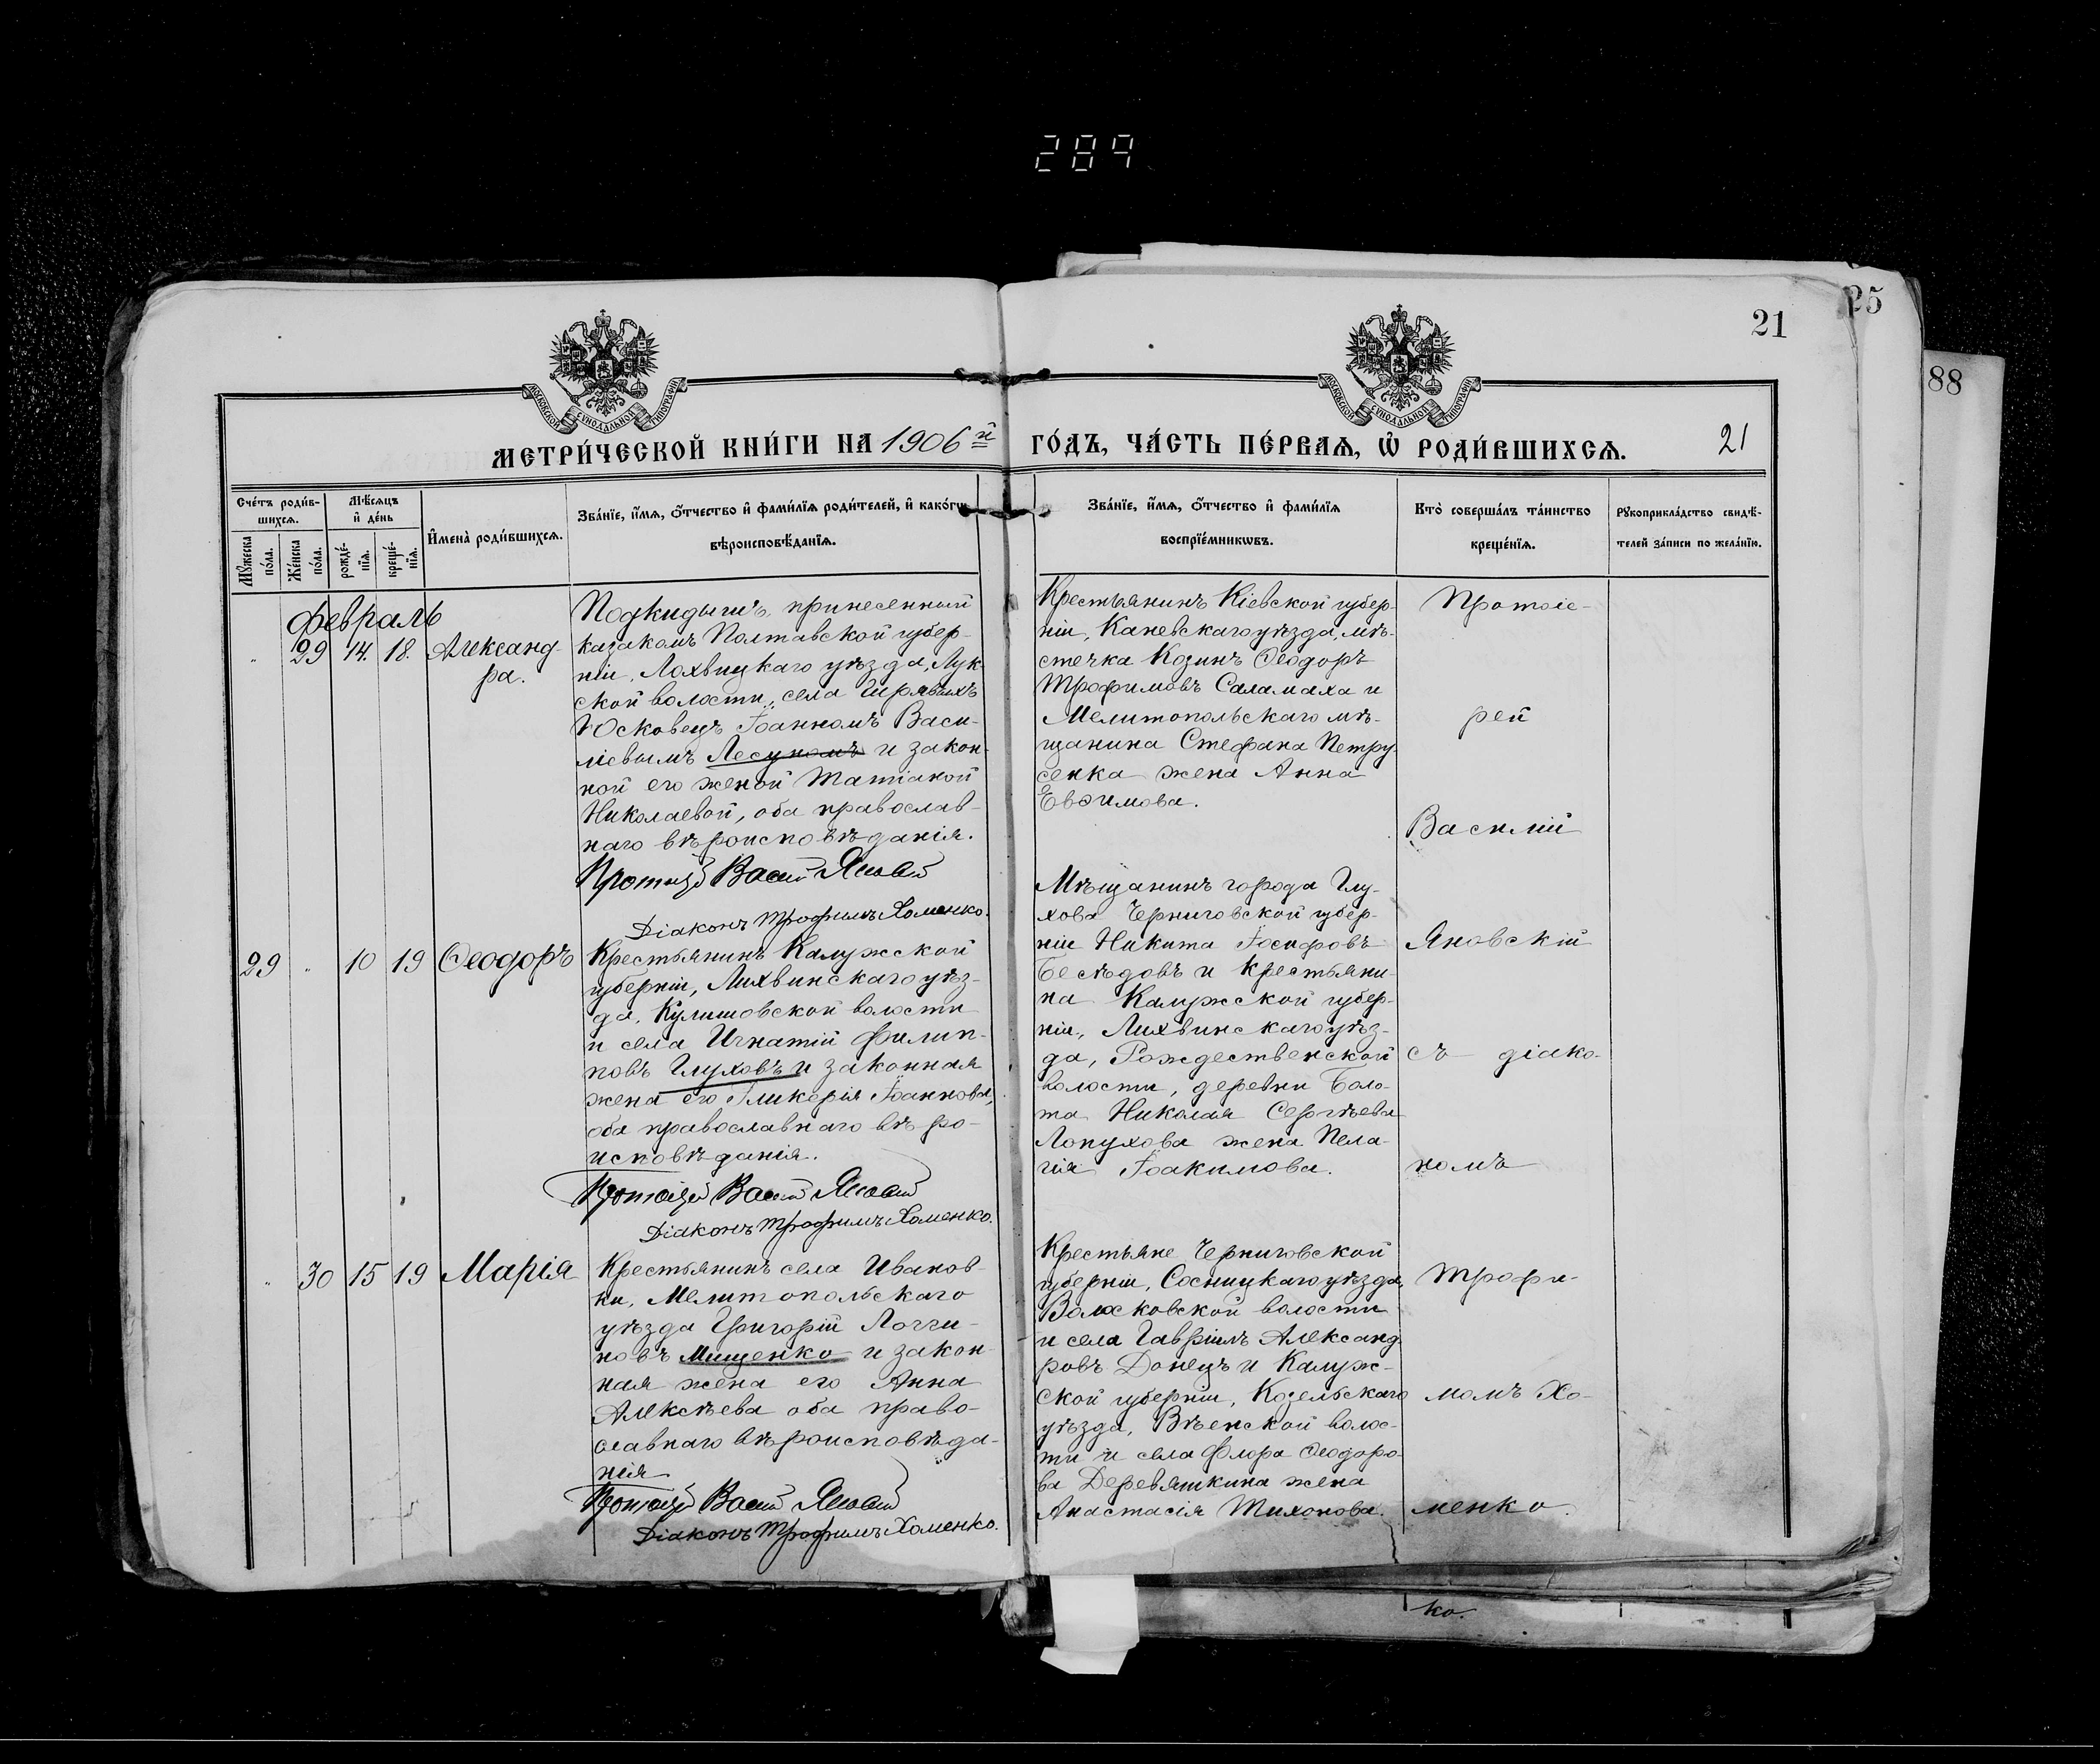 289
25
21
88
МОСКОВСКОЙ СѴНОДАЛЬНОЙ ТИПОГРАФІИ
МОСКОВСКОЙ СѴНОДАЛЬНОЙ ТИПОГРАФІИ
МЕТРИ́ЧЕСКОЙ КНИ́ГИ НА 1906й ГО́ДЪ, ЧА́СТЬ ПЕ́РВАЯ, Ѡ҆ РОДИ́ВШИХСѦ.
21
Сче́тъ роди́в-
шихсѧ.
Мꙋ́жеска
по́ла.
Же́нска
по́ла.
Мѣ́сѧцъ
и҆ де́нь
рожде́-
нїѧ.
креще́-
нїѧ.
И҆мена̀ роди́вшихсѧ.
Зва́нїе, и҆́мѧ, ѻ҆́тчество и҆ фами́лїѧ роди́телей, и҆ како́гѡ
вѣроисповѣ́данїѧ.
Зва́нїе, и҆́мѧ, ѻ҆́тчество и҆ фами́лїѧ
воспрїе́мникѡвъ.
Кто̀ соверша́лъ та́инство
креще́нїѧ.
Рꙋкоприкла́дство свидѣ́-
телей за́писи по жела́нїю.
Февраль
" 29 14. 18. Александ-
ра.
Подкидышъ, принесенный
казакомъ Полтавской губер-
ніи, Лохвицкаго уѣзда, Лук-
ской волости, села
Юсковецъ Іоанномъ Васи-
ліевымъ Лесуномъ и закон-
ной его женой Татіаной
Николаевой, оба православ-
наго вѣроисповѣданія.
Протоіерей Василій Яновскій
Діаконъ Трофимъ Хоменко.
Крестьянинъ Кіевской губер-
ніи, Каневскаго уѣзда, мѣ-
стечка Козинъ Ѳеодоръ
Трофимовъ Саламаха и
Мелитопольскаго мѣ-
щанина Стефана Петру-
сенка жена Анна
Евѳимова.
29 " 10 19 Ѳеодоръ
Крестьянинъ Калужской
губерніи, Лихвинскаго уѣз-
да, Кулешовской волости
и села Игнатій Филип-
повъ Глуховъ и законная
жена его Гликерія Іоаннова,
оба православнаго вѣро-
исповѣданія.
Протоіерей Василій Яновскій
Діаконъ Трофимъ Хоменко.
Мѣщанинъ города Глу-
хова Черниговской губер-
ніи Никита Іосифовъ
Бесѣдовъ и крестьяни-
на Калужской губер-
ніи, Лихвинскаго уѣз-
да, Рождественской
волости, деревни Боло-
та Николая Сергѣева
Лопухова жена Пела-
гія Іоакимова.
" 30 15 19 Марія
Крестьянинъ села Иванов-
ки, Мелитопольскаго
уѣзда Григорій Логги-
новъ Мищенко и закон-
ная жена его Анна
Алексѣева оба право-
славнаго вѣроисповѣда-
нія
Протоіерей Василій Яновскій
Діаконъ Трофимъ Хоменко.
Крестьяне Черниговской
губерніи, Сосницкаго уѣзда,
Волосковской волости
и села Гавріилъ Александ-
ровъ Донецъ и Калуж-
ской губерніи, Козельскаго
уѣзда, волос-
ти и села Флора Ѳеодоро-
ва Деревяшкина жена
Анастасія Тихонова.
Протоіе-
рей
Василій
Яновскій
съ діако-
номъ
Трофи-
момъ Хо-
менко.
ко.